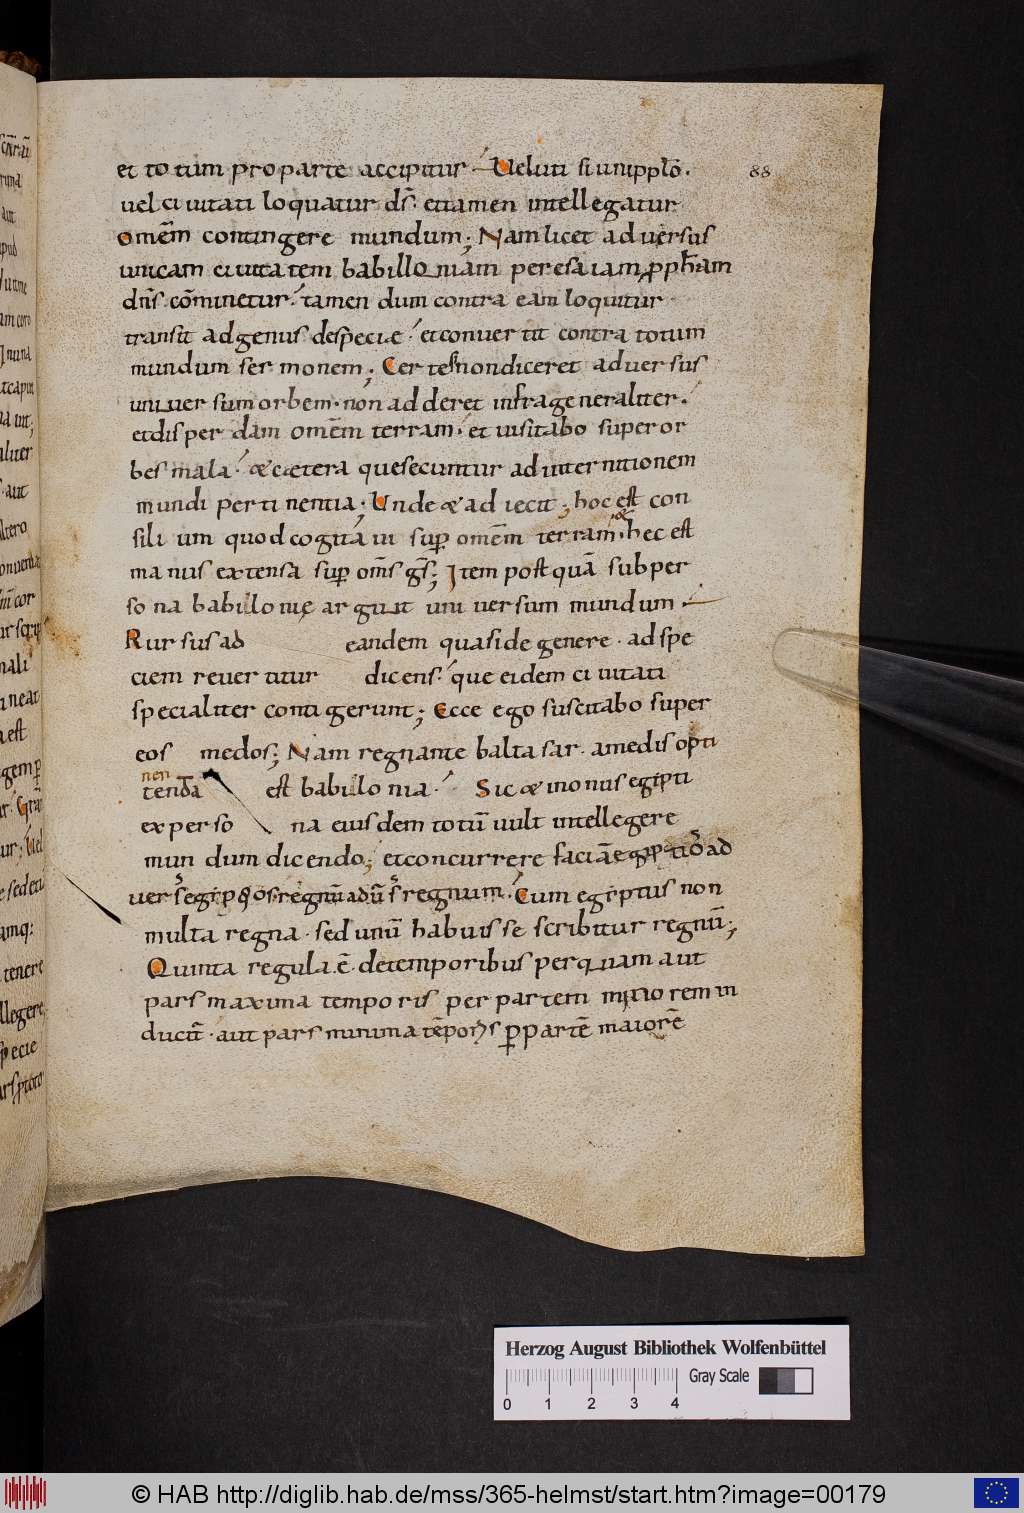 et totum pro parte accipitur. Veluti si uni pplō.
vel civitati loquatur d̄s. et tamen intellegatur
omēm contingere mundum; Nam licet adversus
unicam civitatem babilloniam per esaiam p̱ph̄am
dn̄s cōminetur. tamen dum contra eam loquitur
transit ad genus de speciae. et convertit contra totum
mundum sermonem; Certe si non diceret adversus
universum orbem. non adderet infra generaliter.
et disperdam omēm terram. et visitabo super or
bes mala. & caetera que secuntur ad internitionem
mundi pertinentia; Unde & adiecit; hoc est con
silium quod cogitāvi sup̄ omēm terram. & hec est
manus extensa sup̄ omēs gēs; Item postquā sub per
sona babilonie arguit universum mundum.
Rursus ab eandem quasi de genere. ad spe
ciem revertitur dicens. que eidem civitati
specialiter contigerunt; Ecce ego suscitabo super
eos medos; Nam regnante baltasar. a medis opti
nen
tenda est babilonia. Sic & in onus egipti
ex persona eiusdem totū vult intellegere
mundum dicendo; et concurrere faciā egiptios ad
versus egiptios. regnū adūs regnum. Cum egiptus non
multa regna. sed unū habuisse scribitur regnū;
Quinta regula ē. de temporibus per quam aut
pars maxima temporis per partem minorem in
ducit̄. aut pars minima tēporis p̱ partē maiorē
88
Herzog August Bibliothek Wolfenbüttel
0 1 2 3 4
Gray Scale
© HAB http://diglib.hab.de/mss/365-helmst/start.htm?image=00179